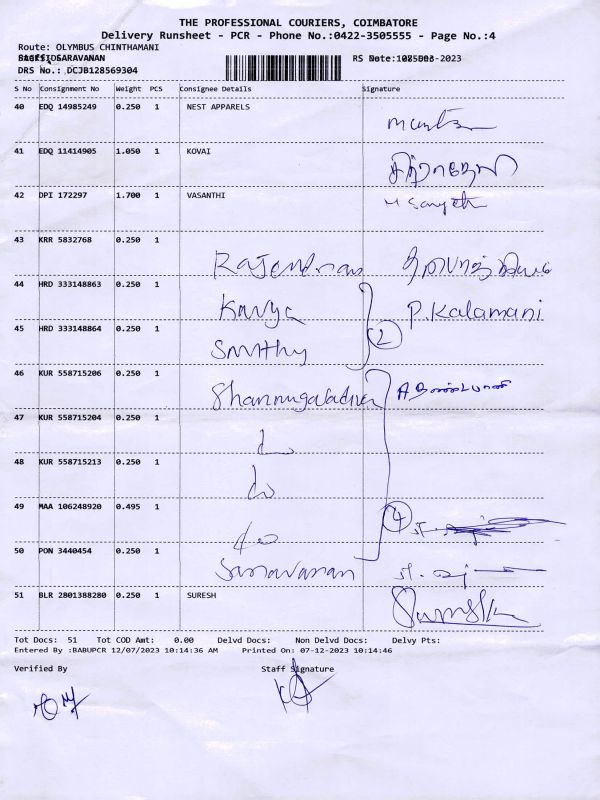 THE PROFESSIONAL COURIERS, COIMBATORE
Delivery Runsheet - PCR - Phone No.:0422-3505555 - Page No.:4
Route: OLYMBUS CHINTHAMANI
SARAVANAN
DRS No.: DCJB128569304
S No Consignment No Weight PCS Consignee Details Signature
40 EDQ 14985249 0.250 1 NEST APPARELS
41 EDQ 11414905 1.050 1 KOVAI
42 DPI 172297 1.700 1 VASANTHI
43 KRR 5832768 0.250 1 Rajendran
44 HRD 333148863 0.250 1 Kavya P.Kalamani
45 HRD 333148864 0.250 1 2
46 KUR 558715206 0.250 1
47 KUR 558715204 0.250 1
48 KUR 558715213 0.250 1 do
49 MAA 106248920 0.495 1 do 4
50 PON 3440454 0.250 1 Saravanan
51 BLR 2801388280 0.250 1 SURESH
Tot Docs: 51 Tot COD Amt: 0.00 Delvd Docs: Non Delvd Docs: Delvy Pts:
Entered By :BABUPCR 12/07/2023 10:14:36 AM Printed On: 07-12-2023 10:14:46
Verified By Staff Signature